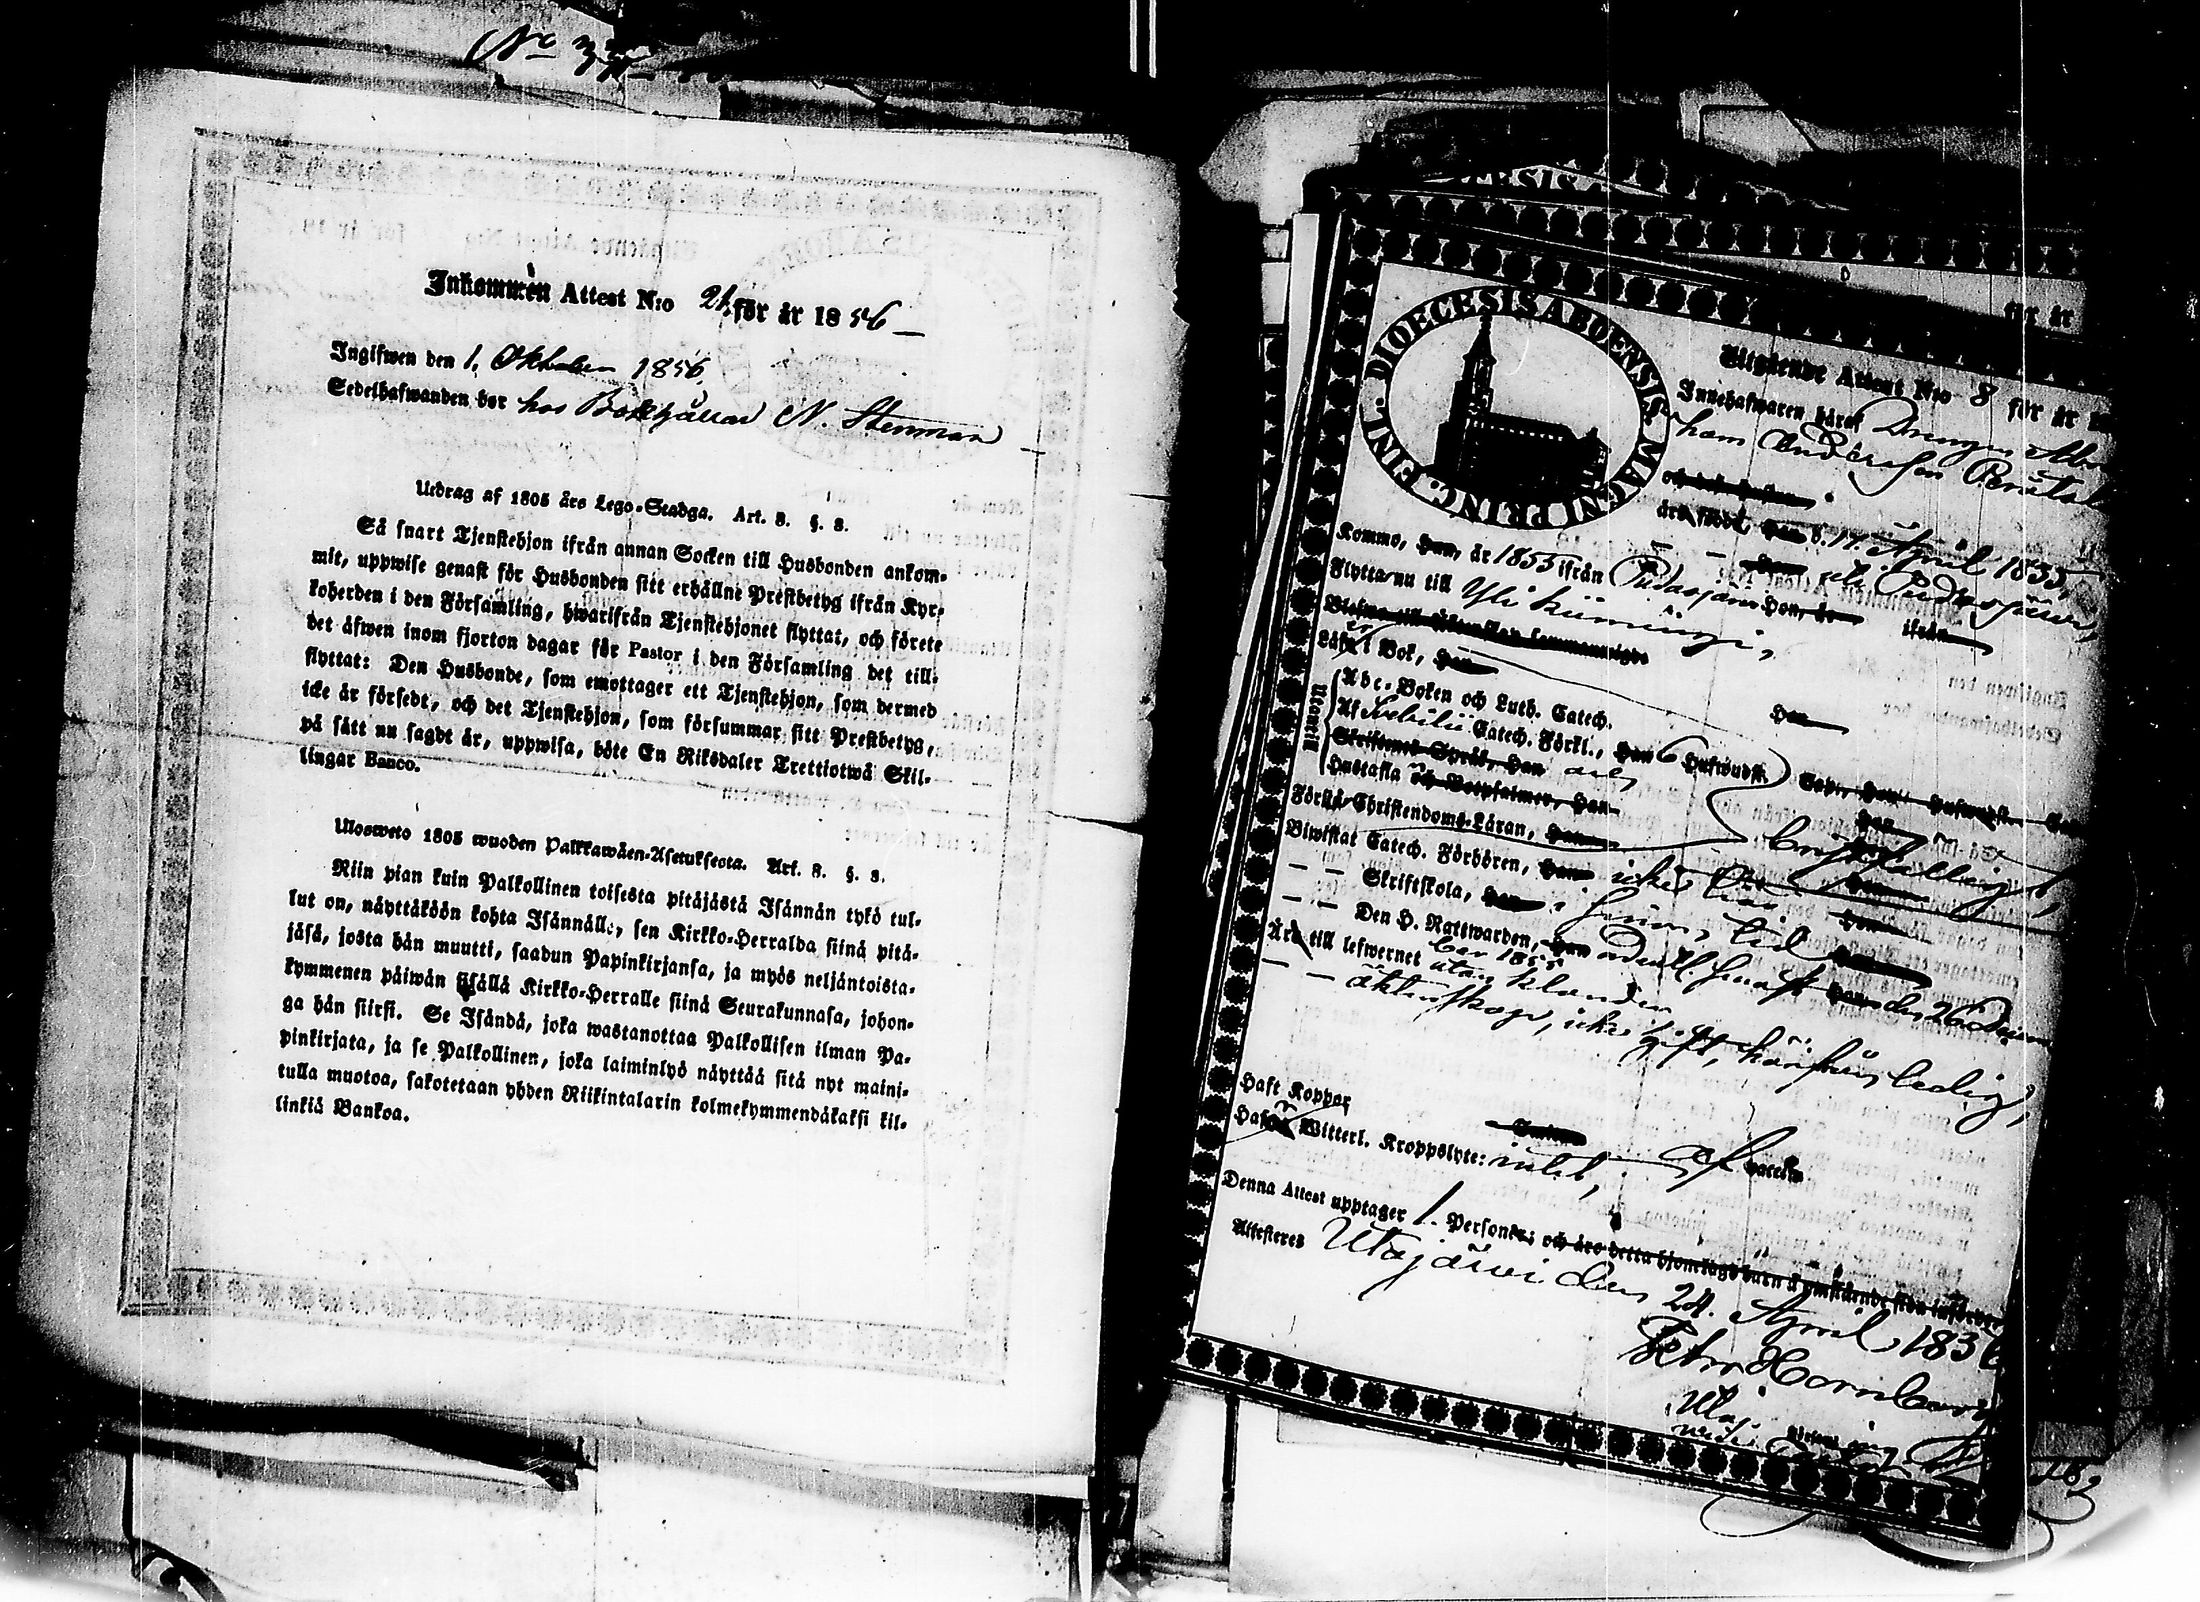 Inkommen Attest N:o 21. för år 1856
Ingifwen den 1. Oktober 1856.
Sedelhafwanden bor hos Bokhållar N. Stenman
Utdrag af 1805 års Lego-Stadga. Art. 8. §. 8.
Så snart Tjenstehjon ifrån annan Socken till Husbonden ankom-
mit, uppwise genast för Husbonden sitt erhållne Prestbetyg ifrån Kyr-
koherden i den Församling, hwarifrån Tjenstehjonet flyttat, och förete
det äfwen inom fjorton dagar för Pastor i den Församling det till-
flyttat: Den Husbonde, som emottager ett Tjenstehjon, som dermed
icke är försedt, och det Tjenstehjon, som försummar sitt Prestbetyg,
på sätt nu sagdt är, uppwisa, böte En Riksdaler Trettiotwå Skil-
lingar Banco.
Ulosweto 1805 wuoden Palkkawäen-Asetuksesta. Art. 8. §. 8.
Niin pian kuin Palkollinen toisesta pitäjästä Isännän tykö tul-
lut on, näyttäköön kohta Isännälle, sen Kirkko-Herralda siinä pitä-
jäsä, josta hän muutti, saadun Papinkirjansa, ja myös neljäntoista-
kymmenen päiwän sisällä Kirkko-Herralle siinä Seurakunnasa, johon-
ga hän siirsi. Se Isändä, joka wastanottaa Palkollisen ilman Pa-
pinkirjata, ja se Palkollinen, joka laiminlyö näyttää sitä nyt maini-
tulla muotoa, sakotetaan yhden Riikintalarin kolmekymmendäkaksi kil-
linkiä Bankoa.
för år
DIOECESIS ABOENSIS MAGNI PRINC. FINL.
Utgående Attest N:o 8 för år
Innehafwaren häraf Drengen
ham Andersson
äro födde, 17. April 1835,
Kommo, han, år 1855 ifrån Pudasjärvi Hon, år ifrån
Flytta nu till Ylikiimingi,
Läsa i Bok, Han Hon
Utantill
Abc-Boken och Luth. Catech.
Af Svebilii Catech. Förkl., Han 6 Hufwudst.
Skriftenes Språk, Han
Hustafla och Botpsalmer, Han
Förstå Christendoms-Läran, Han
Biwistat Catech. Förhören, Han icke
Skriftskola, Han i sinom tid
Den H. Nattwarden, Han ordentl. senast den 26 Decem
ber 1855
Äro till lefwernet utan klander
äktenskap, icke gift, härifrån ledig,
Haft Koppor
Hafwa Witterl. Kroppslyte: intet,
Denna Attest upptager 1. Personer; och äro detta hjonelags barn å omstående sida införde
Attesteres Utajärvi den 24. April 1856
Petr. Hornborg